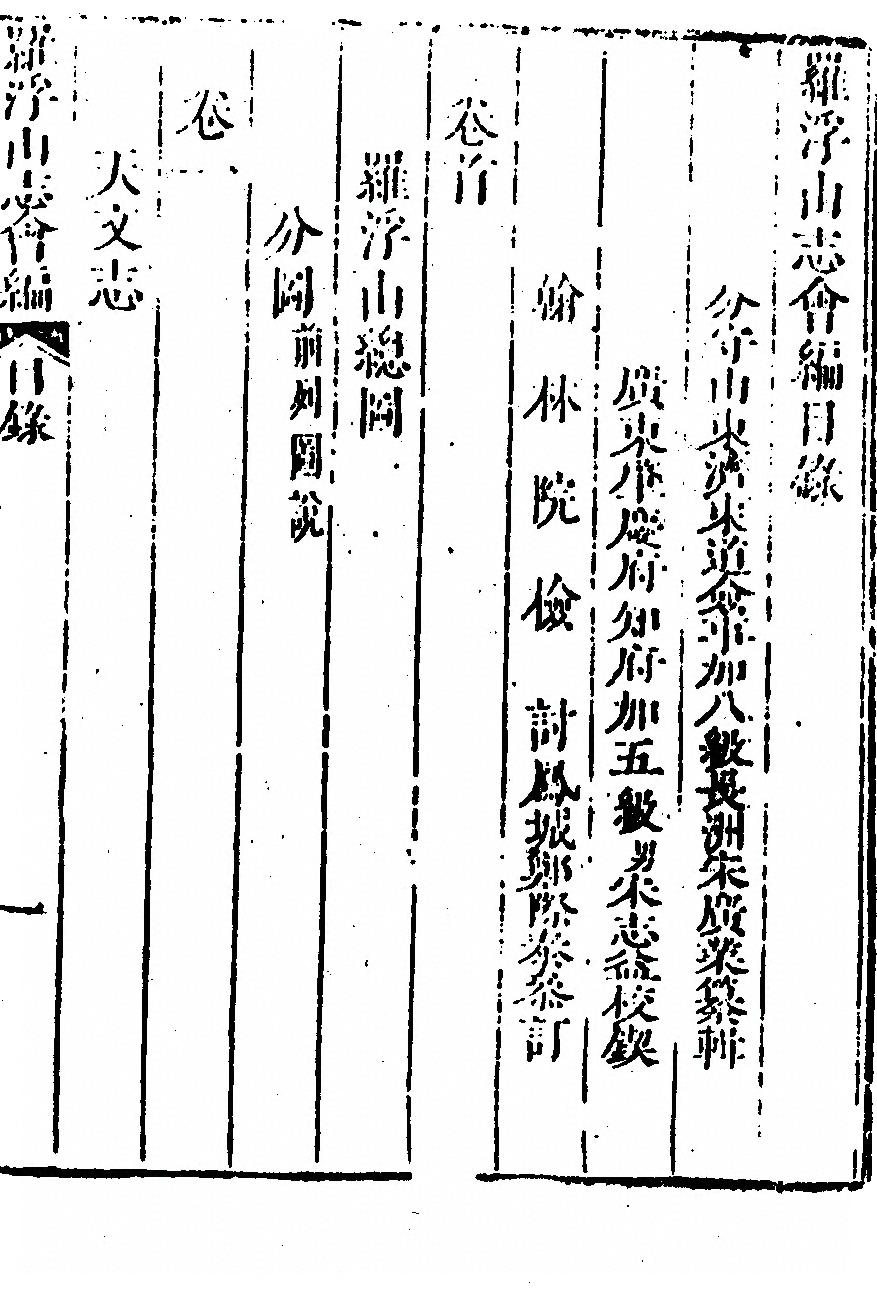 羅浮山志會編目錄
分守山東濟東道僉事加八級長洲宋廣業纂輯
廣東肇慶府知府加五級男宋志益校鋟
翰林院檢討鳳城鄭際泰叅訂
卷首
羅浮山總圖
分圖前列圖說
卷一
天文志
羅浮山志會編 目錄 一